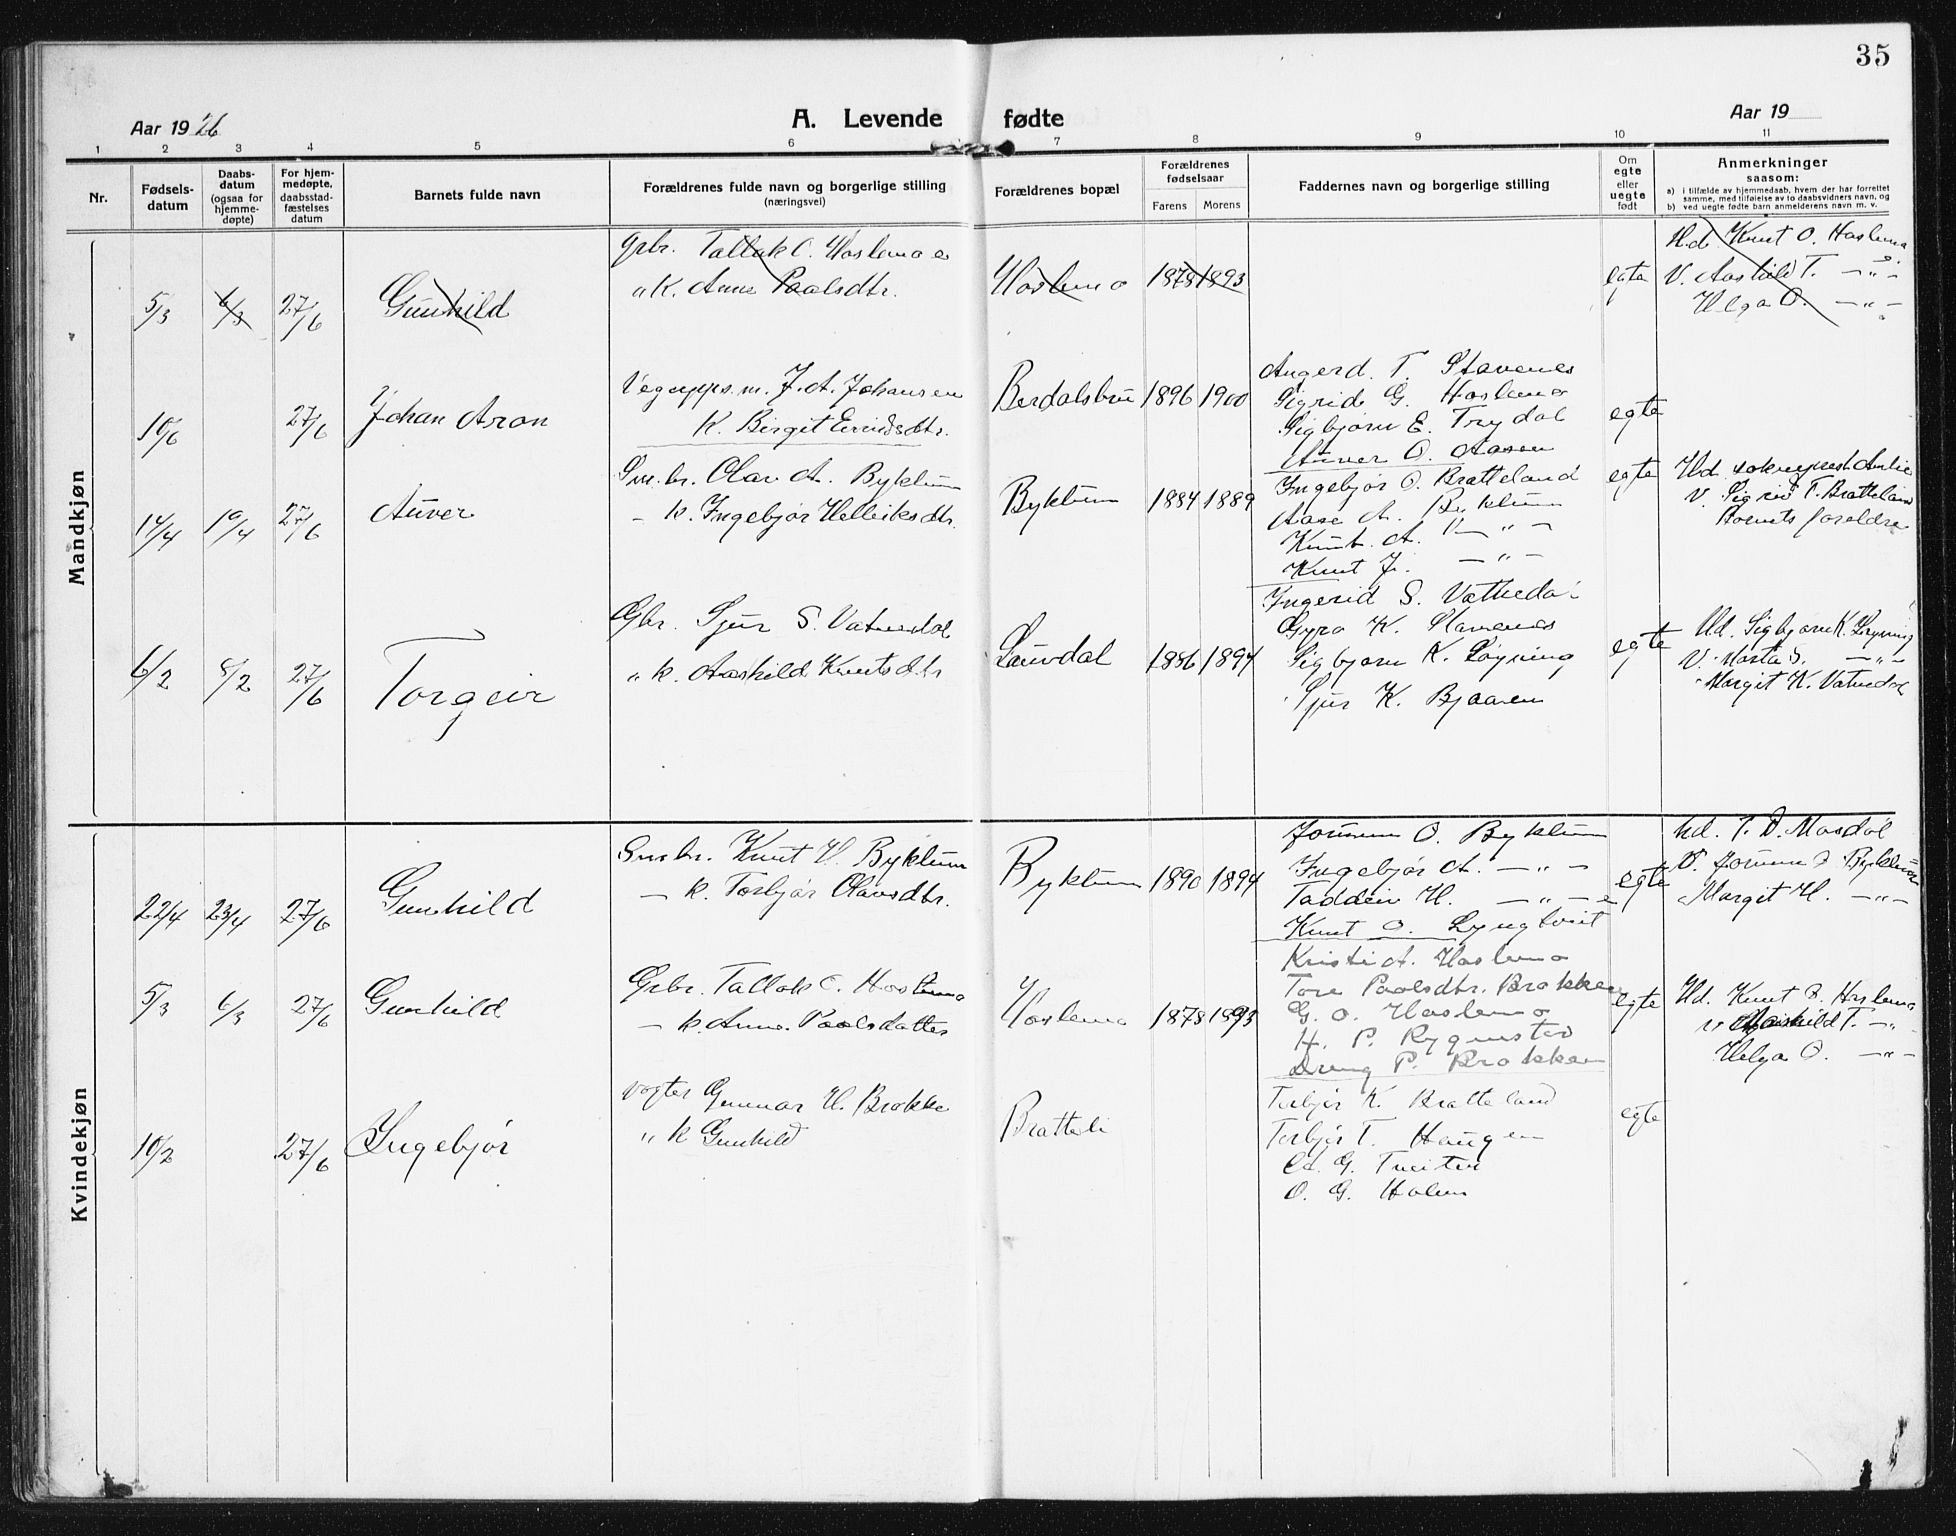 35
Aar 1926
A. Levende fødte
Aar 19
1 2 3 4 5 6 7 8 9 10 11
Nr.
Fødsels-
datum
Daabs-
datum
(ogsaa for
hjemme-
døpte)
For hjem-
medøpte,
daabsstad-
fæstelses
datum
Barnets fulde navn
Forældrenes fulde navn og borgerlige stilling
(næringsvei)
Forældrenes bopæl
Forældrenes
fødselsaar
Farens Morens
Faddernes navn og borgerlige stilling
Om
egte
eller
uegte
født
Anmerkninger
saasom:
a) i tilfælde av hjemmedaab, hvem der har forrettet
samme, med tilføielse av to daabsvidners navn, og
b) ved uegte fødte barn anmelderens navn m. v.
Mandkjøn
5/3 6/3 27/6
Gunhild
Grbr. Tallak O. Hoslemo o
" K. Anne Paalsdtr.
Hoslemo
1878 1893
egte
Hd. Knut O. Hoslemo
V. Aashild T. —"—
Helga O. —"—
10/6 27/6
Johan Aron
Vegopps.m. J. A. Johansen
K. Birgit Eivindsdtr.
Berdalsbru
1896 1900
Angerd. T. Stavenes
Sigrid G. Hoslemo
Sigbjørn E. Trydal
Auver O. Aasen
egte
14/4 19/4 27/6
Auver
Sm.br. Olav A. Byklum
– k. Ingebjør Helleiksdtr.
Byklum
1884 1889
Ingebjør O. Bratteland
Aase A. Byklum
Knut A. —"—
Knut J. —"—
egte
Hd. sokneprest
V. Sigrid T. Bratteland
Barnets foreldre
6/2 8/2 27/6
Torgeir
Gbr. Sjur S. Vatnedal
" k. Aashild Knutsdtr
Lauvdal
1886 1894
Ingerid S. Vatneda
Gyro K. Stavenes
Sigbjørn K. Løyning
Sjur K. Bjaaren
egte
Hd. Sigbjørn K. Løyning
V. Marta S. —"—
Margit K. Vatnedal
Kvindekjøn
22/4 23/4 27/6
Gunhild
Smbr. Knut H. Byklum
— k. Torbjør Olavsdtr.
Byklum
1890 1894
Jorunn O. Byklum
Ingebjør A. —"—
Taddeiv H. —"—
Knut O. Lyngtveit
egte
hd. T. D. Mosdøl
V. Jorunn O. Byklum
Margit H. —"—
5/3 6/3 27/6
Gunhild
Grbr. Tallak O. Hoslemo
— k. Anne Paalsdatter
Hoslemo
1878 1893
Kristi A. Hoslemo
Tore Paalsdtr. Brokken
G. O. Hoslemo
H. P. Rygnestad
Dreng P. Brokken
egte
Hd. Knut O. Hoslemo
v Aashild T. —"—
Helga O. —"—
10/2 27/6
Ingebjør
vogter Gunnar H. Brokke
" k Gunhild
Bratteli
Torbjør K. Bratteland
Torbjør T. Haugen
G. Tveiten
O. G. Holen
egte